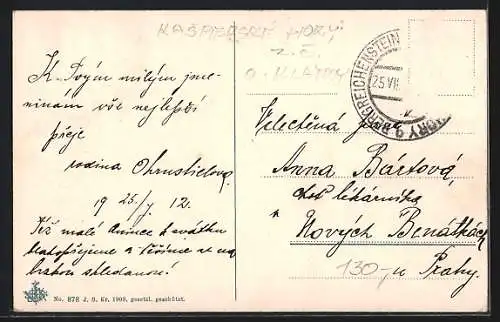 KAŠPERSKÉ HORY
z. č.
o. KLATOVY
BERGREICHENSTEIN
HORY
25 VII
K Tvým milým jme-
ninám vše nejlepší
přeje
rodina
19 25/7 12.
Též malé Anince k svátku
blahopřejeme a těšíme se na
shledanou!
Velectěná paní
Anna Bártová,
choť lékárníka
Nových Benátkách
130,- u Prahy.
No. 878 J. S. Kr. 1909, gesetzl. geschützt.